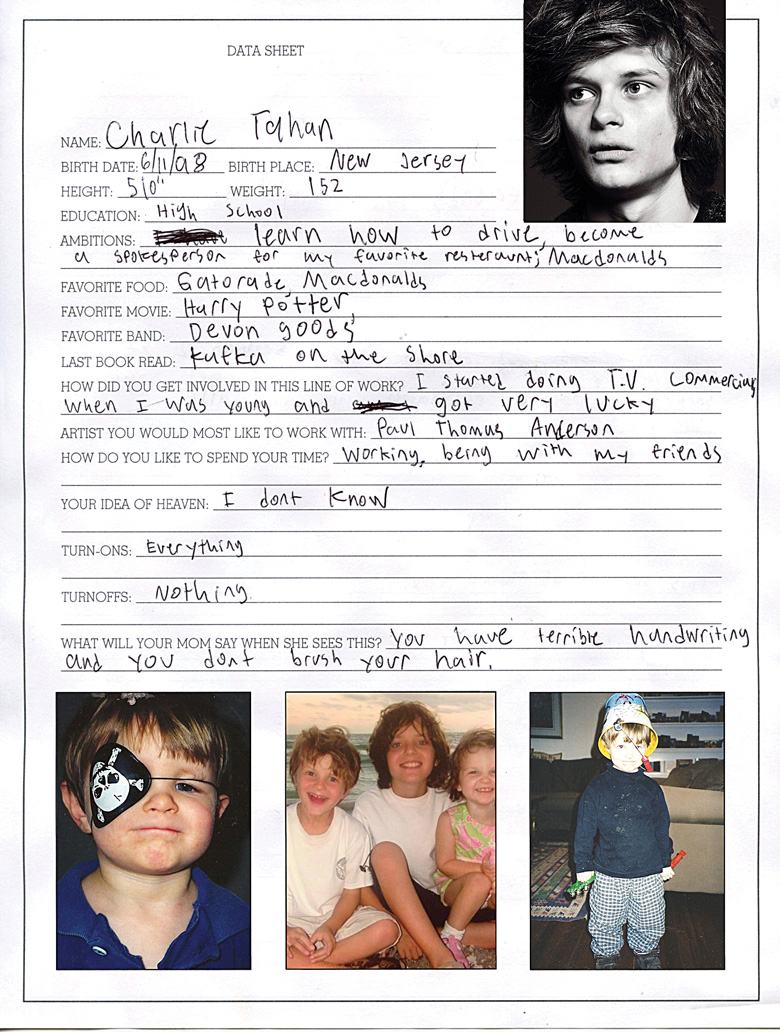 DATA SHEET
NAME: Charlie Tahan
BIRTH DATE: 6/11/98 BIRTH PLACE: New Jersey
HEIGHT: 5'10" WEIGHT: 152
EDUCATION: High School
AMBITIONS: learn how to drive, become
a spokesperson for my favorite resteraunt; Macdonalds
FAVORITE FOOD: Gatorade, Macdonalds
FAVORITE MOVIE: Harry Potter,
FAVORITE BAND: Devon goods
LAST BOOK READ: Kafka on the Shore
HOW DID YOU GET INVOLVED IN THIS LINE OF WORK? I started doing T.V. Commercials
when I was young and got very lucky
ARTIST YOU WOULD MOST LIKE TO WORK WITH: Paul Thomas Anderson
HOW DO YOU LIKE TO SPEND YOUR TIME? Working, being with my friends
YOUR IDEA OF HEAVEN: I dont know
TURN-ONS: Everything
TURNOFFS: Nothing
WHAT WILL YOUR MOM SAY WHEN SHE SEES THIS? You have terrible handwriting
and you dont brush your hair.